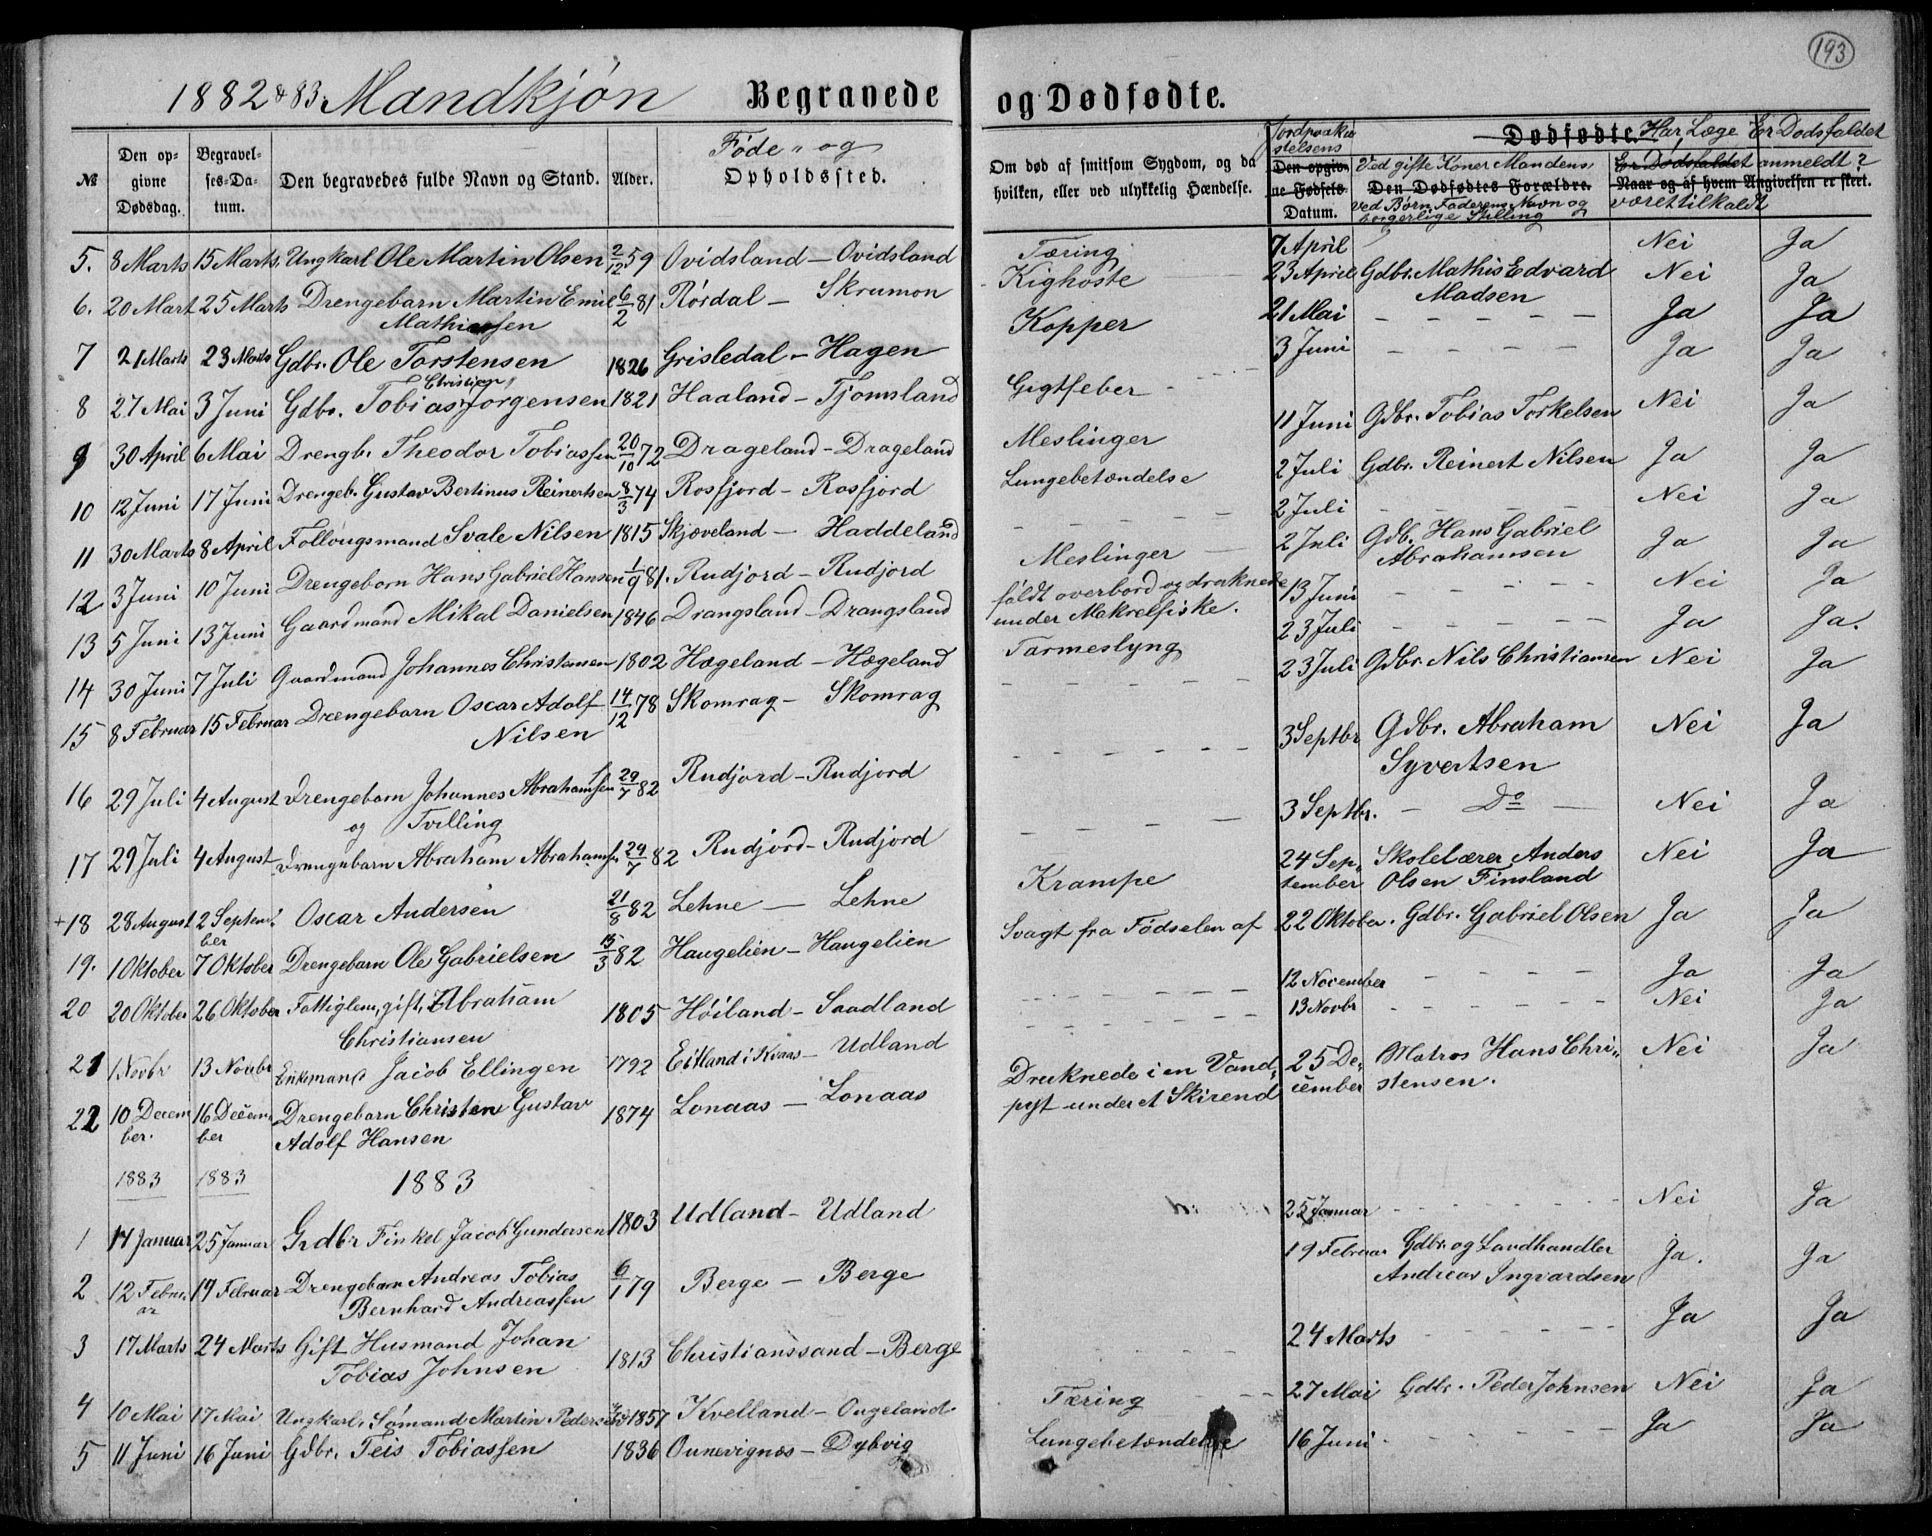 193
1882 & 83. Mandkjøn Begravede og Dødfødte.
№ Den opgivne Dødsdag. Begravelses-Datum. Den begravedes fulde Navn og Stand. Alder. Føde- og Opholdssted. Om død af smitsom Sygdom, og da hvilken, eller ved ulykkelig Hændelse. Jordpaakastelsens Den opgivne Fødsels-Datum. Dødfødte. Ved gifte Koner Mandens, Den Dødfødtes Forældre. ved Børn Faderens Navn og borgerlige Stilling Har Læge Er Dødsfaldet anmeldt? Naar og af hvem Angivelsen er skeet. været tilkaldt Er Dødsfaldet
5. 8 Marts 15 Marts. Ungkarl Ole Martin Olsen 2/12 59 Ovidsland - Ovidsland Tæring 7 April Nei Ja
6. 20 Mart 25 Marts Drengebarn Martin Emil Mathiassen 6/2 81 Rørdal - Skrumon Kighoste 23 April Gdbr. Mathis Edvard Madsen Nei Ja
7 21 Marts 23 Marts Gdbr. Ole Torstensen 1826 Grisledal - Hagen Kopper 21 Mai - - - - - Ja Ja
8 27 Mai 3 Juni Gdbr. Tobias Christian Jorgensen 1821 Haaland - Tjomsland Gigtfeber 3 Juni - - - - - Ja Ja
9 30 April 6 Mai Drengb. Theodor Tobiassen 20/10 72 Drageland - Drageland Meslinger 11 Juni Gdbr. Tobias Torkelsen Nei Ja
10 12 Juni 17 Juni Drengeb. Gustav Bertinus Reinertsen 8/3 74 Rosfjord - Rosfjord Lungebetændelse 2 Juli Gdbr. Reinert Nilsen Ja Ja
11 30 Marts 8 April Folløugsmand Svale Nilsen 1815 Skjæveland - Haddeland - - - - - 2 Juli Nei Ja
12 3 Juni 10 Juni Drengeborn Hans Gabriel Hansen 1/9 81. Rudjord - Rudjord Meslinger 2 Juli Gdb. Hans Gabriel Abrahamsen Ja Ja
13 5 Juni 13 Juni Gaardmand Mikal Danielsen 1846 Drangsland - Drangsland faldt overbord og druknede under Makrelfiske. 13 Juni - - - - Nei Ja
14 30 Juni 7 Juli Gaardmand Johannes Christensen 1802 Hægeland - Hægeland Tarmeslyng 23 Juli - - - - - Ja Ja.
15 8 Februar 15 Februar Drengebarn Oscar Adolf Nilsen 14/12 78 Skomrag - Skomrag - - - - - 23 Juli Gdbr Nils Christiansen Nei Ja
16 29 Juli 4 August Drengebarn Johannes Abrahamsen 29/7 82 Rudjord - Rudjord - - - - - 3 Septbr Gdbr. Abraham Syvertsen Nei Ja
og Tvilling
17 29 Juli 4 August Drengebarn Abraham Abrahamsen 29/7 82 Rudjord - Rudjord - - - - - 3 Septbr. - Do - Nei Ja
+18 28 August 2 September Oscar Andersen 21/8 82 Lehne - Lehne Krampe 24 September Skolelærer Anders Olsen Finsland Nei Ja
19. 1 Oktober 7 Oktober Drengebarn Ole Gabrielsen 15/3 82 Haugelien - Haugelien Svagt fra Fødselen af 22 Oktober. Gdbr. Gabriel Olsen Ja Ja
20 20 Oktober 26 Oktober Fattiglem, gift, Abraham Christiansen 1805 Høiland - Saadland - - - - - 12 November - - - - Ja Ja
21 1 Novbr 13 Novbr Enkemand Jacob Ellingen 1792 Eitland i Kvaas - Udland - - - - - 13 Novbr - - - - - Nei Ja
22 10 December. 16 December Drengebarn Christen Gustav Adolf Hansen 1874 Lonaas - Lonaas Druknede i en Vandpyt under et Skirend 25 December Matros Hans Christensen. Nei Ja
1883 1883 1883
1 17 Januar 25 Januar Grdbr Finkel Jacob Gundersen 1803 Udland - Udland 25 Januar - - - - - Nei Ja
2 12 Februar 19 Februar Drengebarn Andreas Tobias Bernhard Andreassen 6/1 79 Berge - Berge 19 Februar Gdbr. og Landhandler Andreas Ingvardsen Ja. Ja
3 17 Marts 24 Marts Gift Husmand Johan Tobias Johnsen 1813 Christianssand - Berge 24 Marts - - - - - Ja Ja
4 10 Mai 17 Mai Ungkarl, Sømand Martin Pedersen 1857 Kvelland - Ougeland Tæring 27 Mai Gdbr. Peder Johnsen Nei Ja
5 11 Juni 16 Juni Gdbr. Teis Tobiassen 1836 Ounevignæs - Dybvig Lungebetændelse 16 Juni - - - - - Ja Ja